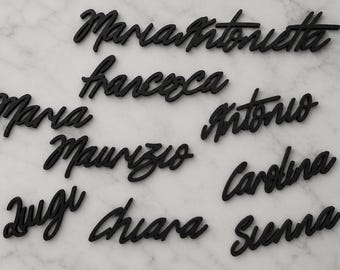 Maria Antonietta
Francesca
Maria
Antonio
Maurizio
Carolina
Luigi
Chiara
Sienna